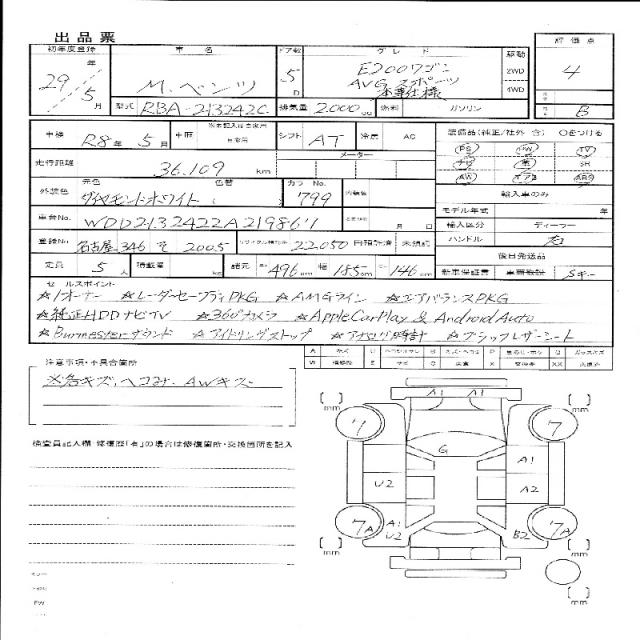 出品票
初年度登録 車名 ドア数 グレード 駆動 評価点
29年 5月 M.ベンツ 5D E200ワゴン AVG.スポーツ 本革仕様 2WD 4WD 4 B
型式 RBA-213242C 排気量 2.000cc 燃料 ガソリン
車検 R8年 5月 車歴 自家用 シフト AT 冷房 AC 装備品(純正/社外 含) 〇をつける
走行距離 36.109 km メーター PS PW TV ナビ 革 SR AW エアB ABS
外装色 元色 ダイヤモンドホワイト 色替 カラーNo. 799 内装色 輸入車のみ
車台No. WDD2132422A219861 月 日 モデル年式 年
輸入区分 ディーラー
登録No. 名古屋 346 そ 2005 リサイクル預託金 22.050 円 預託済 未預託 ハンドル 右
定員 5人 積載量 kg 諸元 長 496cm 幅 185cm 高 146cm 後日発送品
新車保証書 Sキー
セールスポイント
☆1オーナー ☆レーダーセーフティPKG ☆AMGライン ☆エアバランスPKG
☆純正HDDナビTV ☆360°カメラ ☆AppleCarPlay & Android Auto
☆Burmesterサウンド ☆アイドリングストップ ☆アナログ時計 ☆ブラックレザーシート
注意事項・不具合箇所
※各キズ、ヘコミ、AWキズ
検査員記入欄・修復歴「有」の場合は修復箇所・交換箇所を記入
A1 A1
mm mm
7 7
G A1
U2 A2
7A A1 U2 B2 7A
mm mm
mm